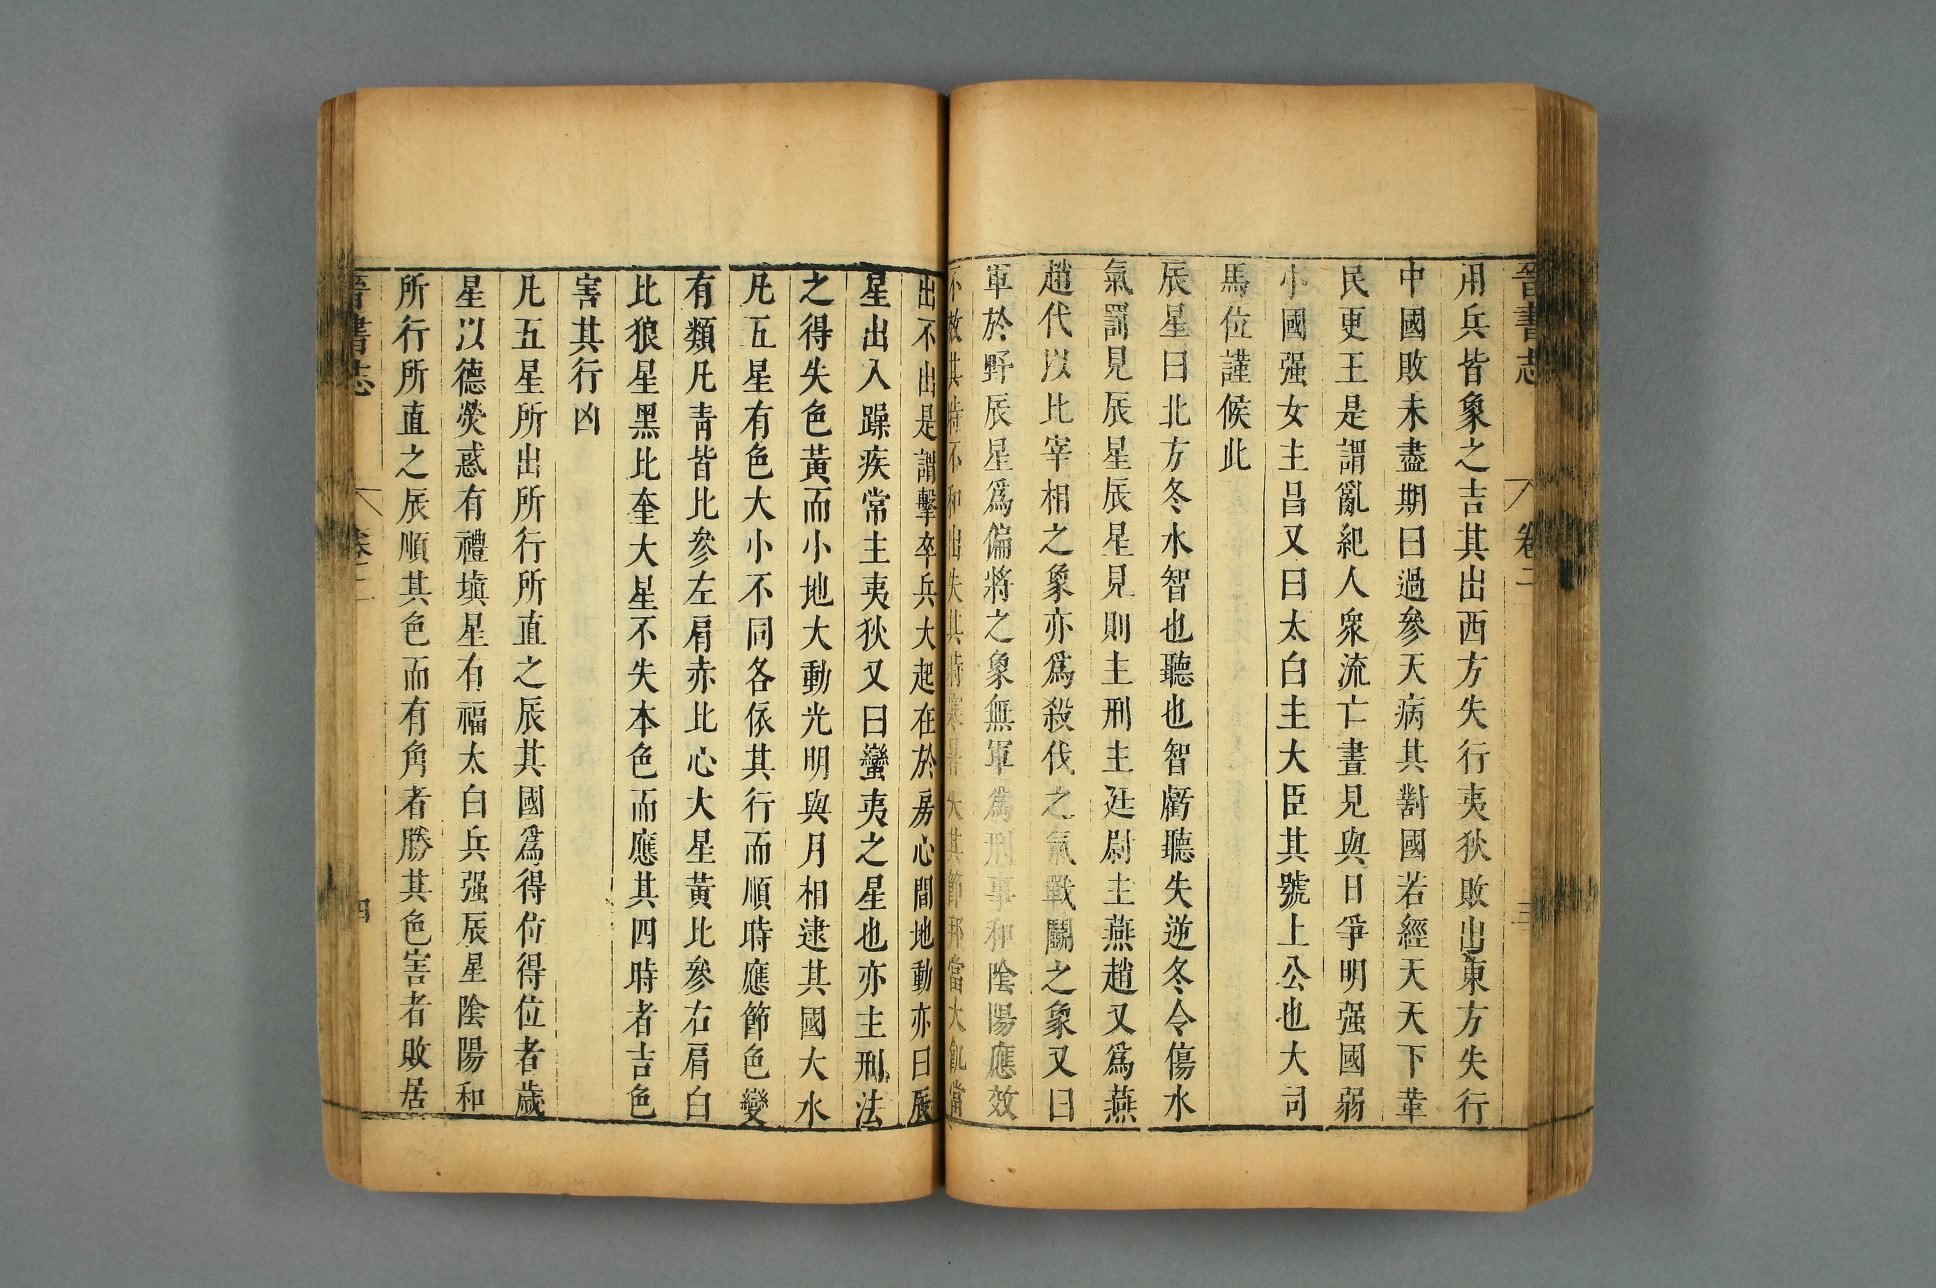 晉書志 卷二 三
用兵皆象之吉其出西方失行夷狄敗出東方失行
中國敗未盡期日過參天病其對國若經天天下革
民更王是謂亂紀人衆流亡晝見與日爭明强國弱
小國强女主昌又曰太白主大臣其號上公也大司
馬位謹候此
辰星曰北方冬水智也聽也智虧聽失逆冬令傷水
氣罰見辰星辰星見則主刑主廷尉主燕趙又爲燕
趙代以北宰相之象亦爲殺伐之氣戰鬭之象又曰
軍於野辰星爲偏將之象無軍爲刑事和陰陽應效
不效其時不和出失其時寒暑失其節邦當大飢當
出不出是謂擊卒兵大起在於房心間地動亦曰辰
星出入躁疾常主夷狄又曰蠻夷之星也亦主刑法
之得失色黃而小地大動光明與月相逮其國大水
凡五星有色大小不同各依其行而順時應節色變
有類凡青皆比參左肩赤比心大星黃比參右肩白
比狼星黑比奎大星不失本色而應其四時者吉色
害其行凶
凡五星所出所行所直之辰其國爲得位得位者歲
星以德熒惑有禮塡星有福太白兵强辰星陰陽和
所行所直之辰順其色而有角者勝其色害者敗居
晉書志 卷二 四